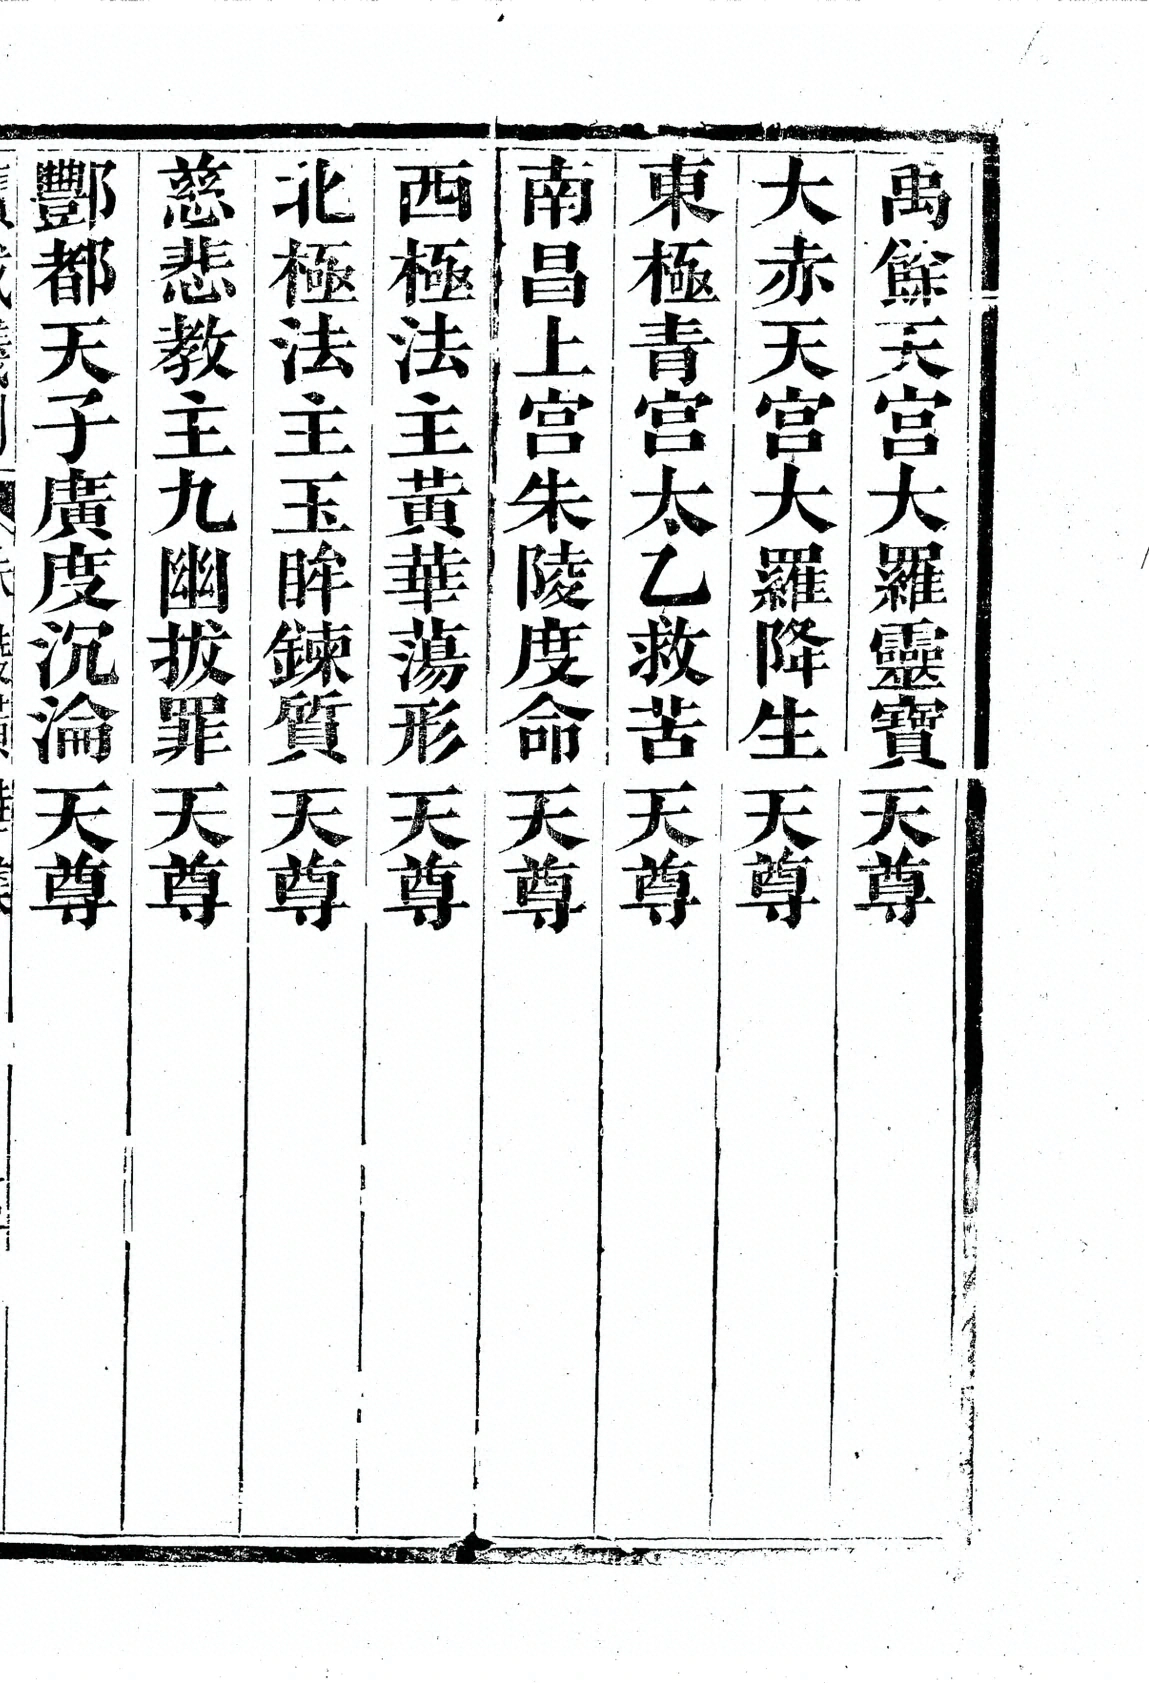 禹餘天宮大羅靈寶天尊
大赤天宮大羅降生天尊
東極青宮太乙救苦天尊
南昌上宮朱陵度命天尊
西極法主黃華蕩形天尊
北極法主玉眸鍊質天尊
慈悲教主九幽拔罪天尊
酆都天子廣度沉淪天尊